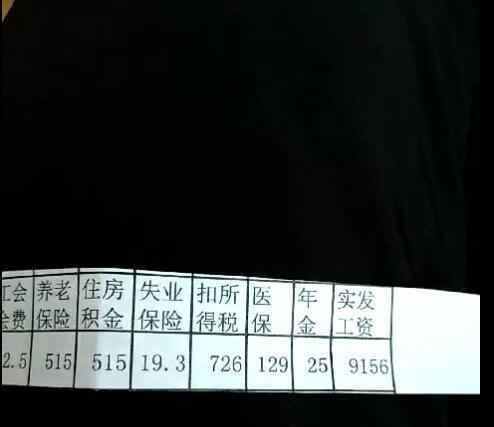 工会 养老 住房 失业 扣所 医 年 实发
会费 保险 积金 保险 得税 保 金 工资
2.5 515 515 19.3 726 129 25 9156